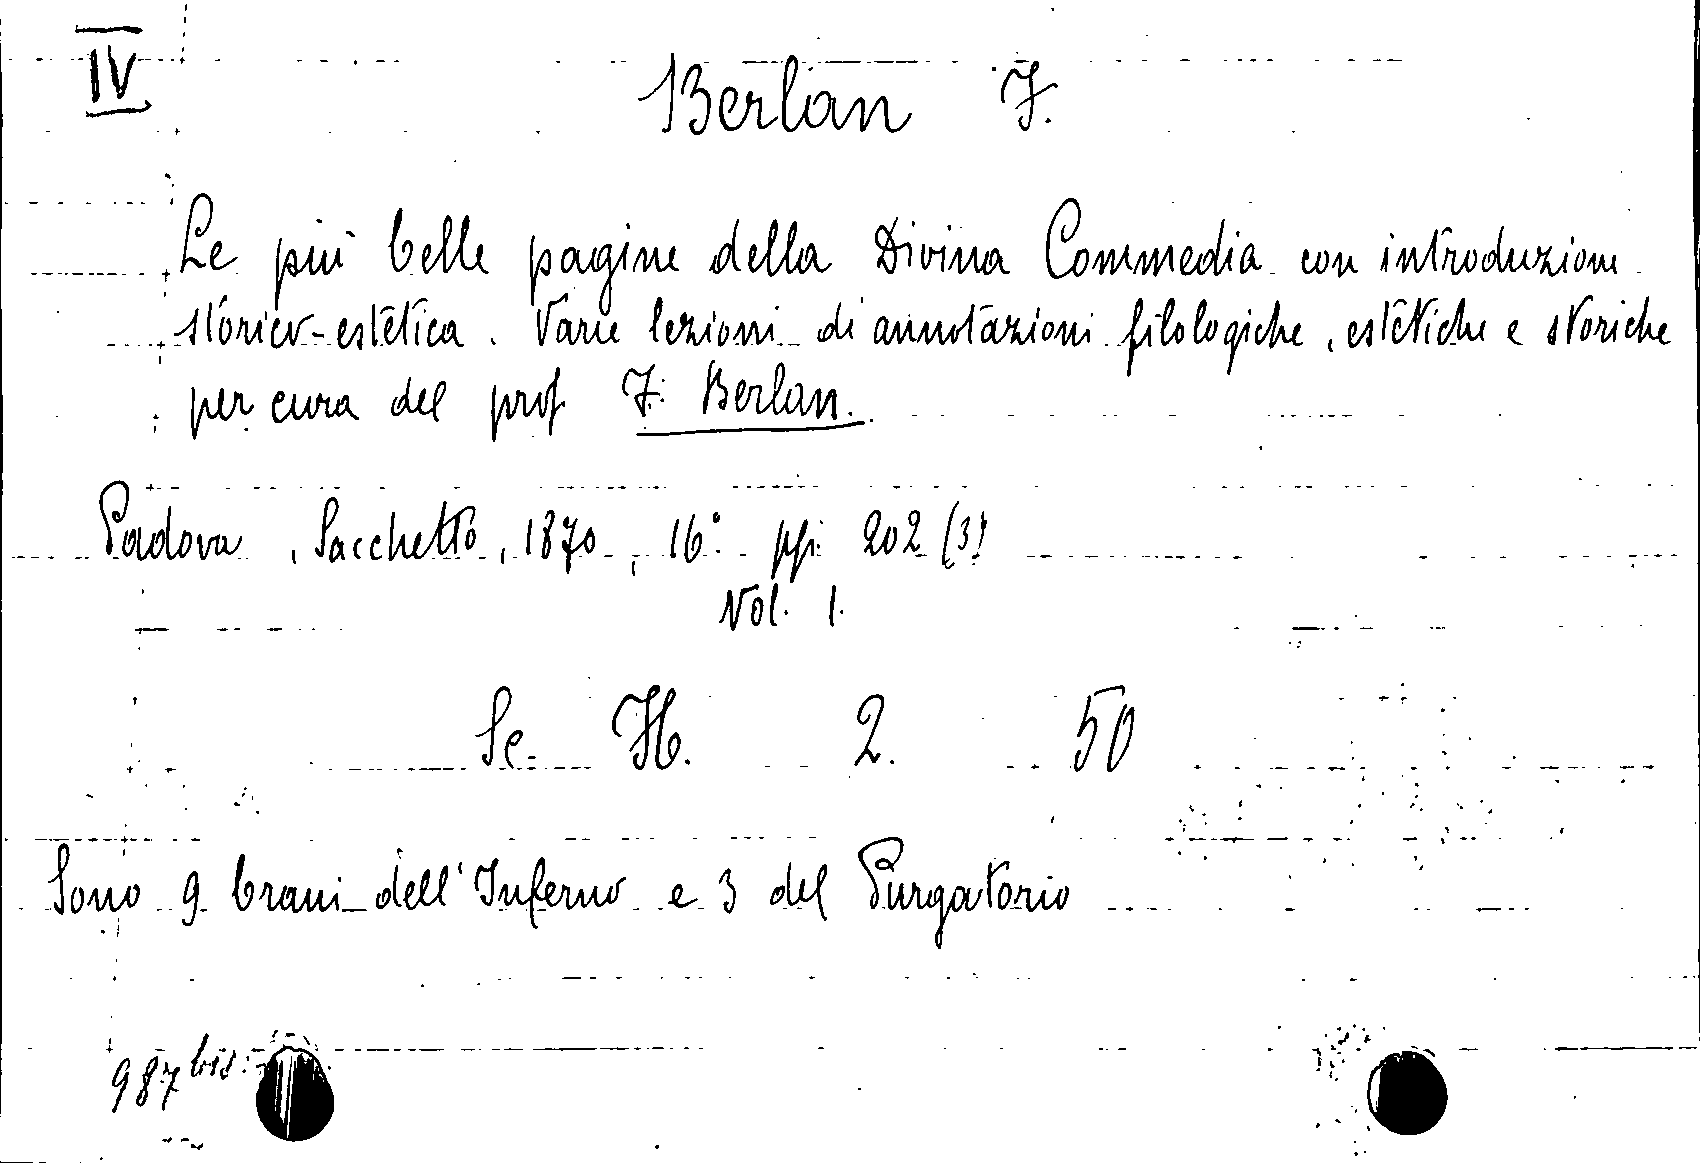 IV
Berlan F.
Le più belle pagine della Divina Commedia con introduzione
storico-estetica. Varie lezioni di annotazioni filologiche, estetiche e storiche
per cura del prof F. Berlan.
Padova, Sacchetto, 1870, 16° pp. 202 (3)
Vol. 1.
Se. H. 2. 50
Sono 9 brani dell'Inferno e 3 del Purgatorio
987 bis